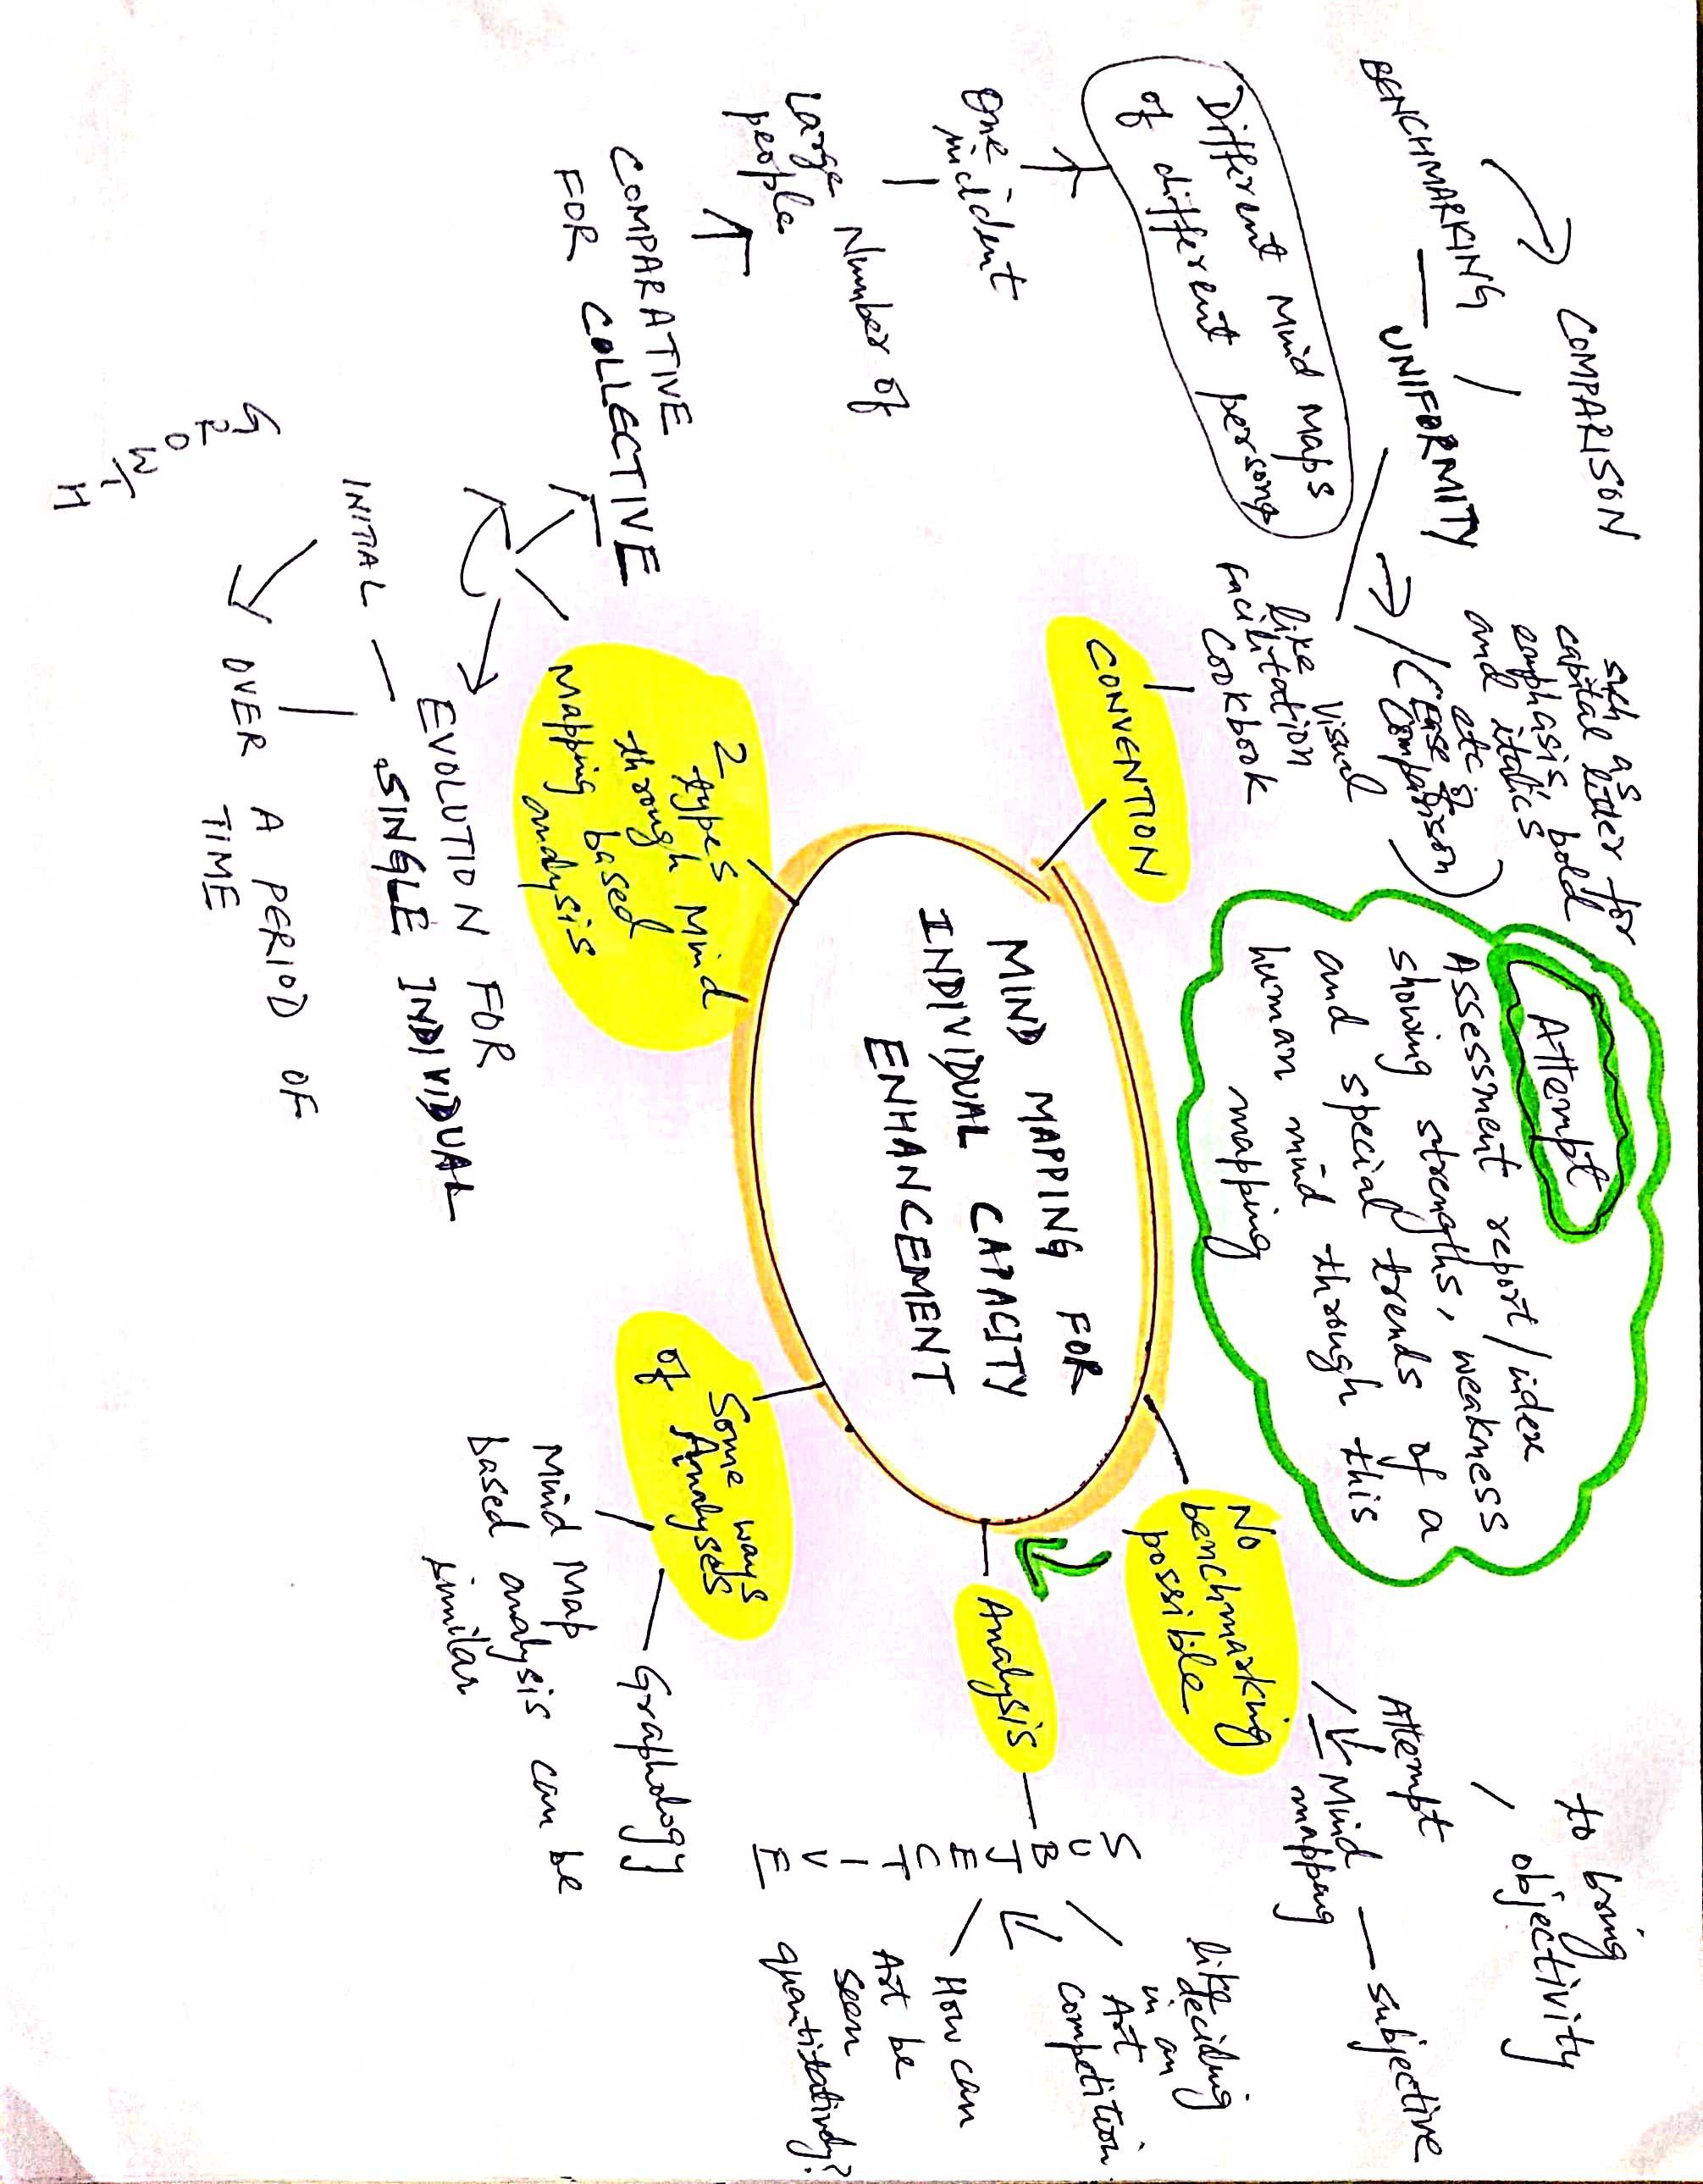 MIND MAPPING FOR
INDIVIDUAL CAPACITY
ENHANCEMENT
CONVENTION
like Visual
facilitation
Cookbook
UNIFORMITY
BENCHMARKING /
COMPARISON
such as
capital letter for
emphasis, bold
and italics
etc
(Ease of
Comparison)
Attempt
Assessment report/index
showing strengths, weakness
and special trends of a
human mind through this
mapping
No
benchmarking
possible
Attempt
to bring
objectivity
Mind
mapping
subjective
Analysis
SUBJECTIVE
like
deciding
in an
Art
competition
How can
Art be
seen
quantitatively?
Some ways
of Analyses
Graphology
Mind Map
based analysis can be
similar
2 types
through Mind
Mapping based
analysis
COMPARATIVE
FOR COLLECTIVE
Large Number of
people
One
incident
Different Mind Maps
of different persons
EVOLUTION FOR
SINGLE INDIVIDUAL
INITIAL
OVER A PERIOD OF
TIME
GROWTH